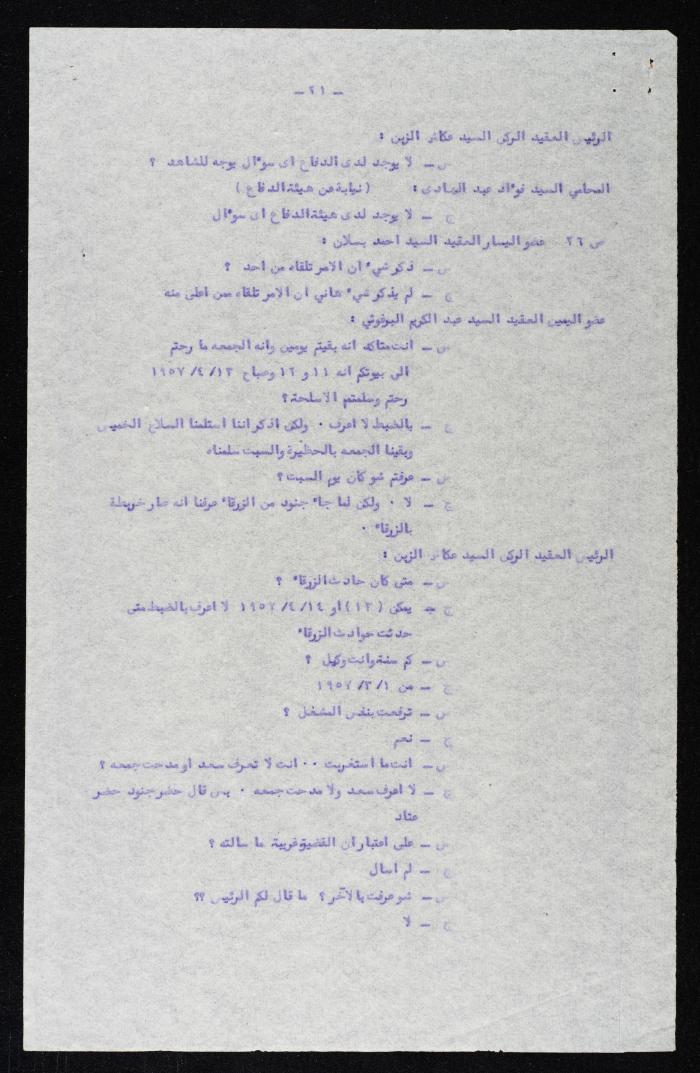 – ٢١ –
الرئيس العقيد الركن السيد عكاش الزبن :
س – لا يوجد لدى الدفاع اى سوءال يوجه للشاهد ؟
المحامي السيد فوءاد عبد الهادى : ( نيابة عن هيئة الدفاع )
ج – لا يوجد لدى هيئة الدفاع اى سوءال
س ٢٦ عضو اليسار العقيد السيد احمد بسلان :
س – ذكر شيء ان الامر تلقاه من احد ؟
ج – لم يذكر شيء هاني ان الامر تلقاه ممن اعلى منه
عضو اليمين العقيد السيد عبد الكريم البرغوثي :
س – انت متاكد انه بقيتم يومين وانه الجمعه ما رحتم
الى بيوتكم انه ١١ و ١٢ وصباح ١٣ /٤ /١٩٥٧
رحتم وسلمتم الاسلحة ؟
ج – بالضبط لا اعرف ٠ ولكن اذكر اننا استلمنا السلاح الخميس
وبقينا الجمعه بالحظيرة والسبت سلمناه
س – عرفتم شو كان يوم السبت ؟
ج – لا ٠ ولكن لما جاء جنود من الزرقاء عرفنا انه صار خربطة
بالزرقاء ٠
الرئيس العقيد الركن السيد عكاش الزبن :
س – متى كان حادث الزرقاء ؟
ج – يمكن ( ١٣ ) او ١٤ /٤ /١٩٥٧ لا اعرف بالضبط متى
حدثت حوادث الزرقاء
س – كم سنة وانت وكيل ؟
ج – من ١ /٣ /١٩٥٧
س – ترفعت بنفس المشغل ؟
ج – نعم
س – انت ما استغربت ٠٠ انت لا تعرف سعد او مدحت جمعه ؟
ج – لا اعرف سعد ولا مدحت جمعه ٠ بس قال حضر جنود حضر
عتاد
س – على اعتبار ان القضية غريبة ما سالته ؟
ج – لم اسال
س – شو عرفت بالآخر ؟ ما قال لكم الرئيس ؟؟
ج – لا